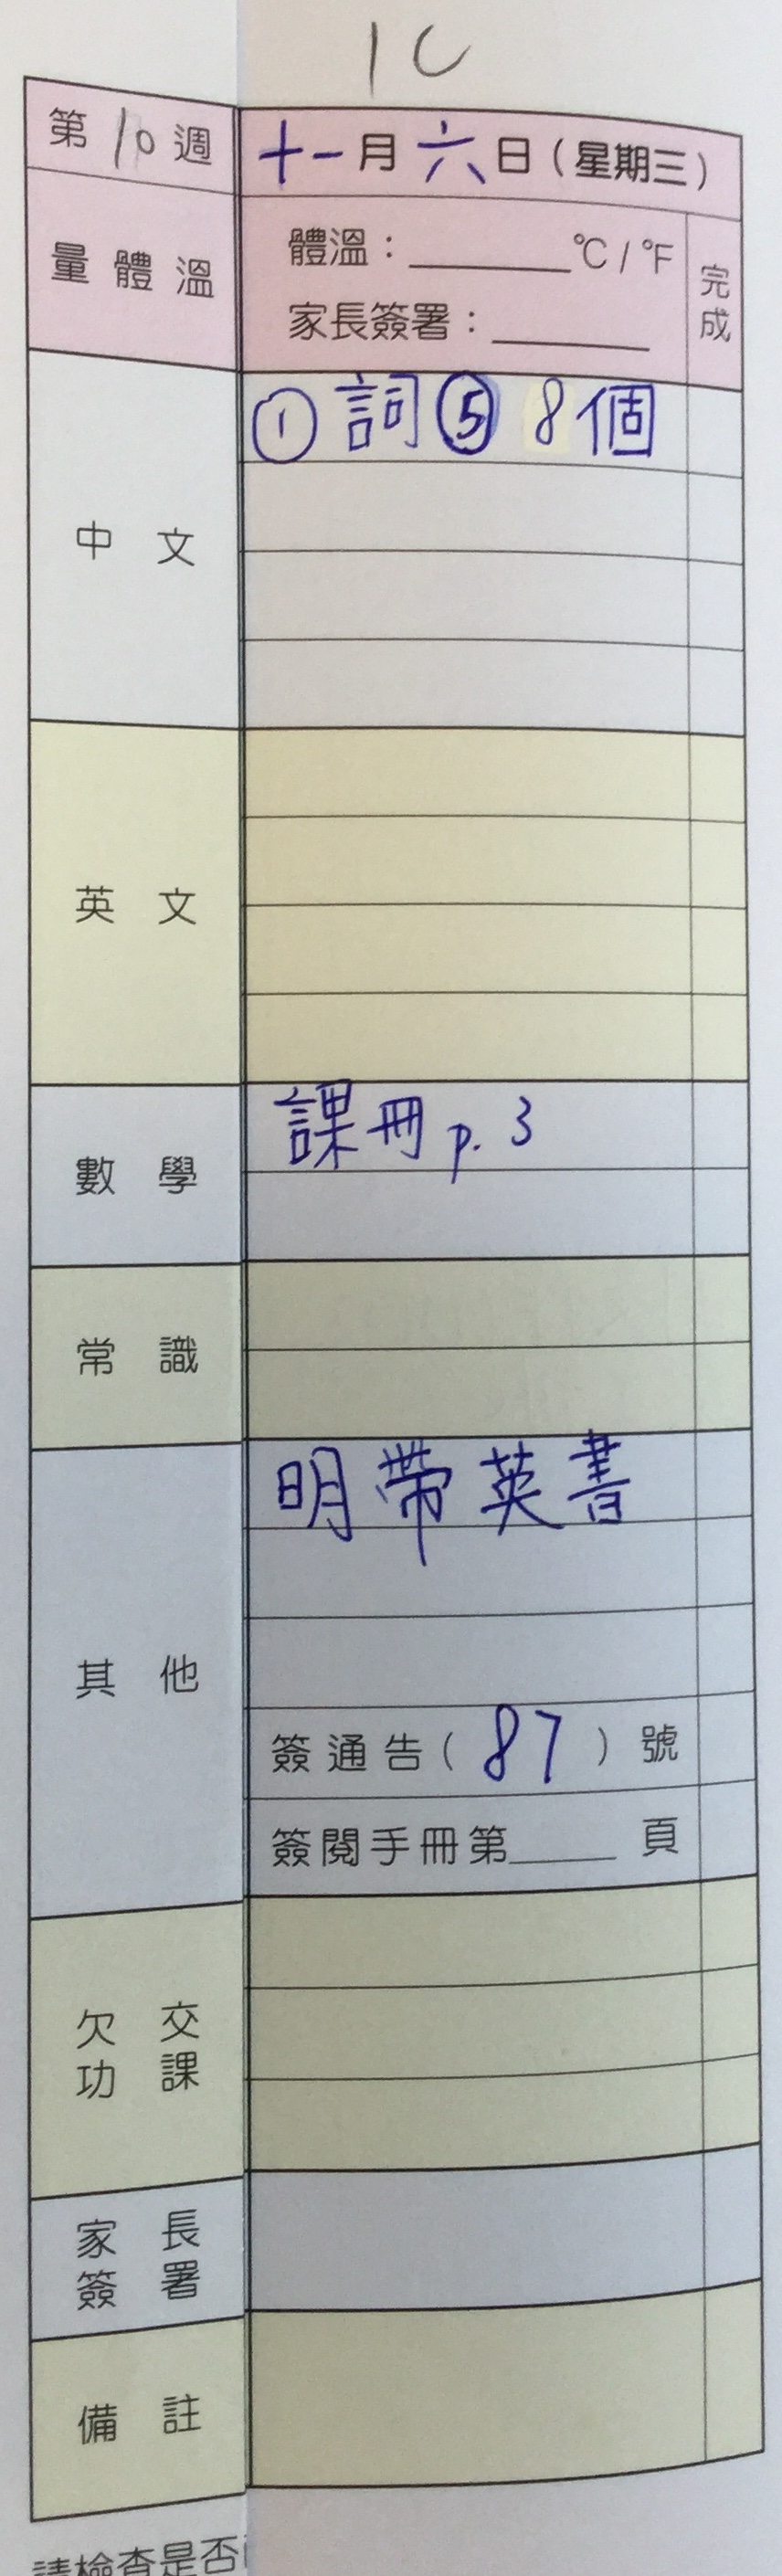 1C
第10週 十一月六日（星期三）
量體溫 體溫：______°C / °F 完成
家長簽署：______
中文 ① 詞⑤ 8個
英文
數學 課冊p.3
常識
其他 明帶英書
簽通告（87）號
簽閱手冊第____頁
欠交功課
家長簽署
備註
請檢查是否